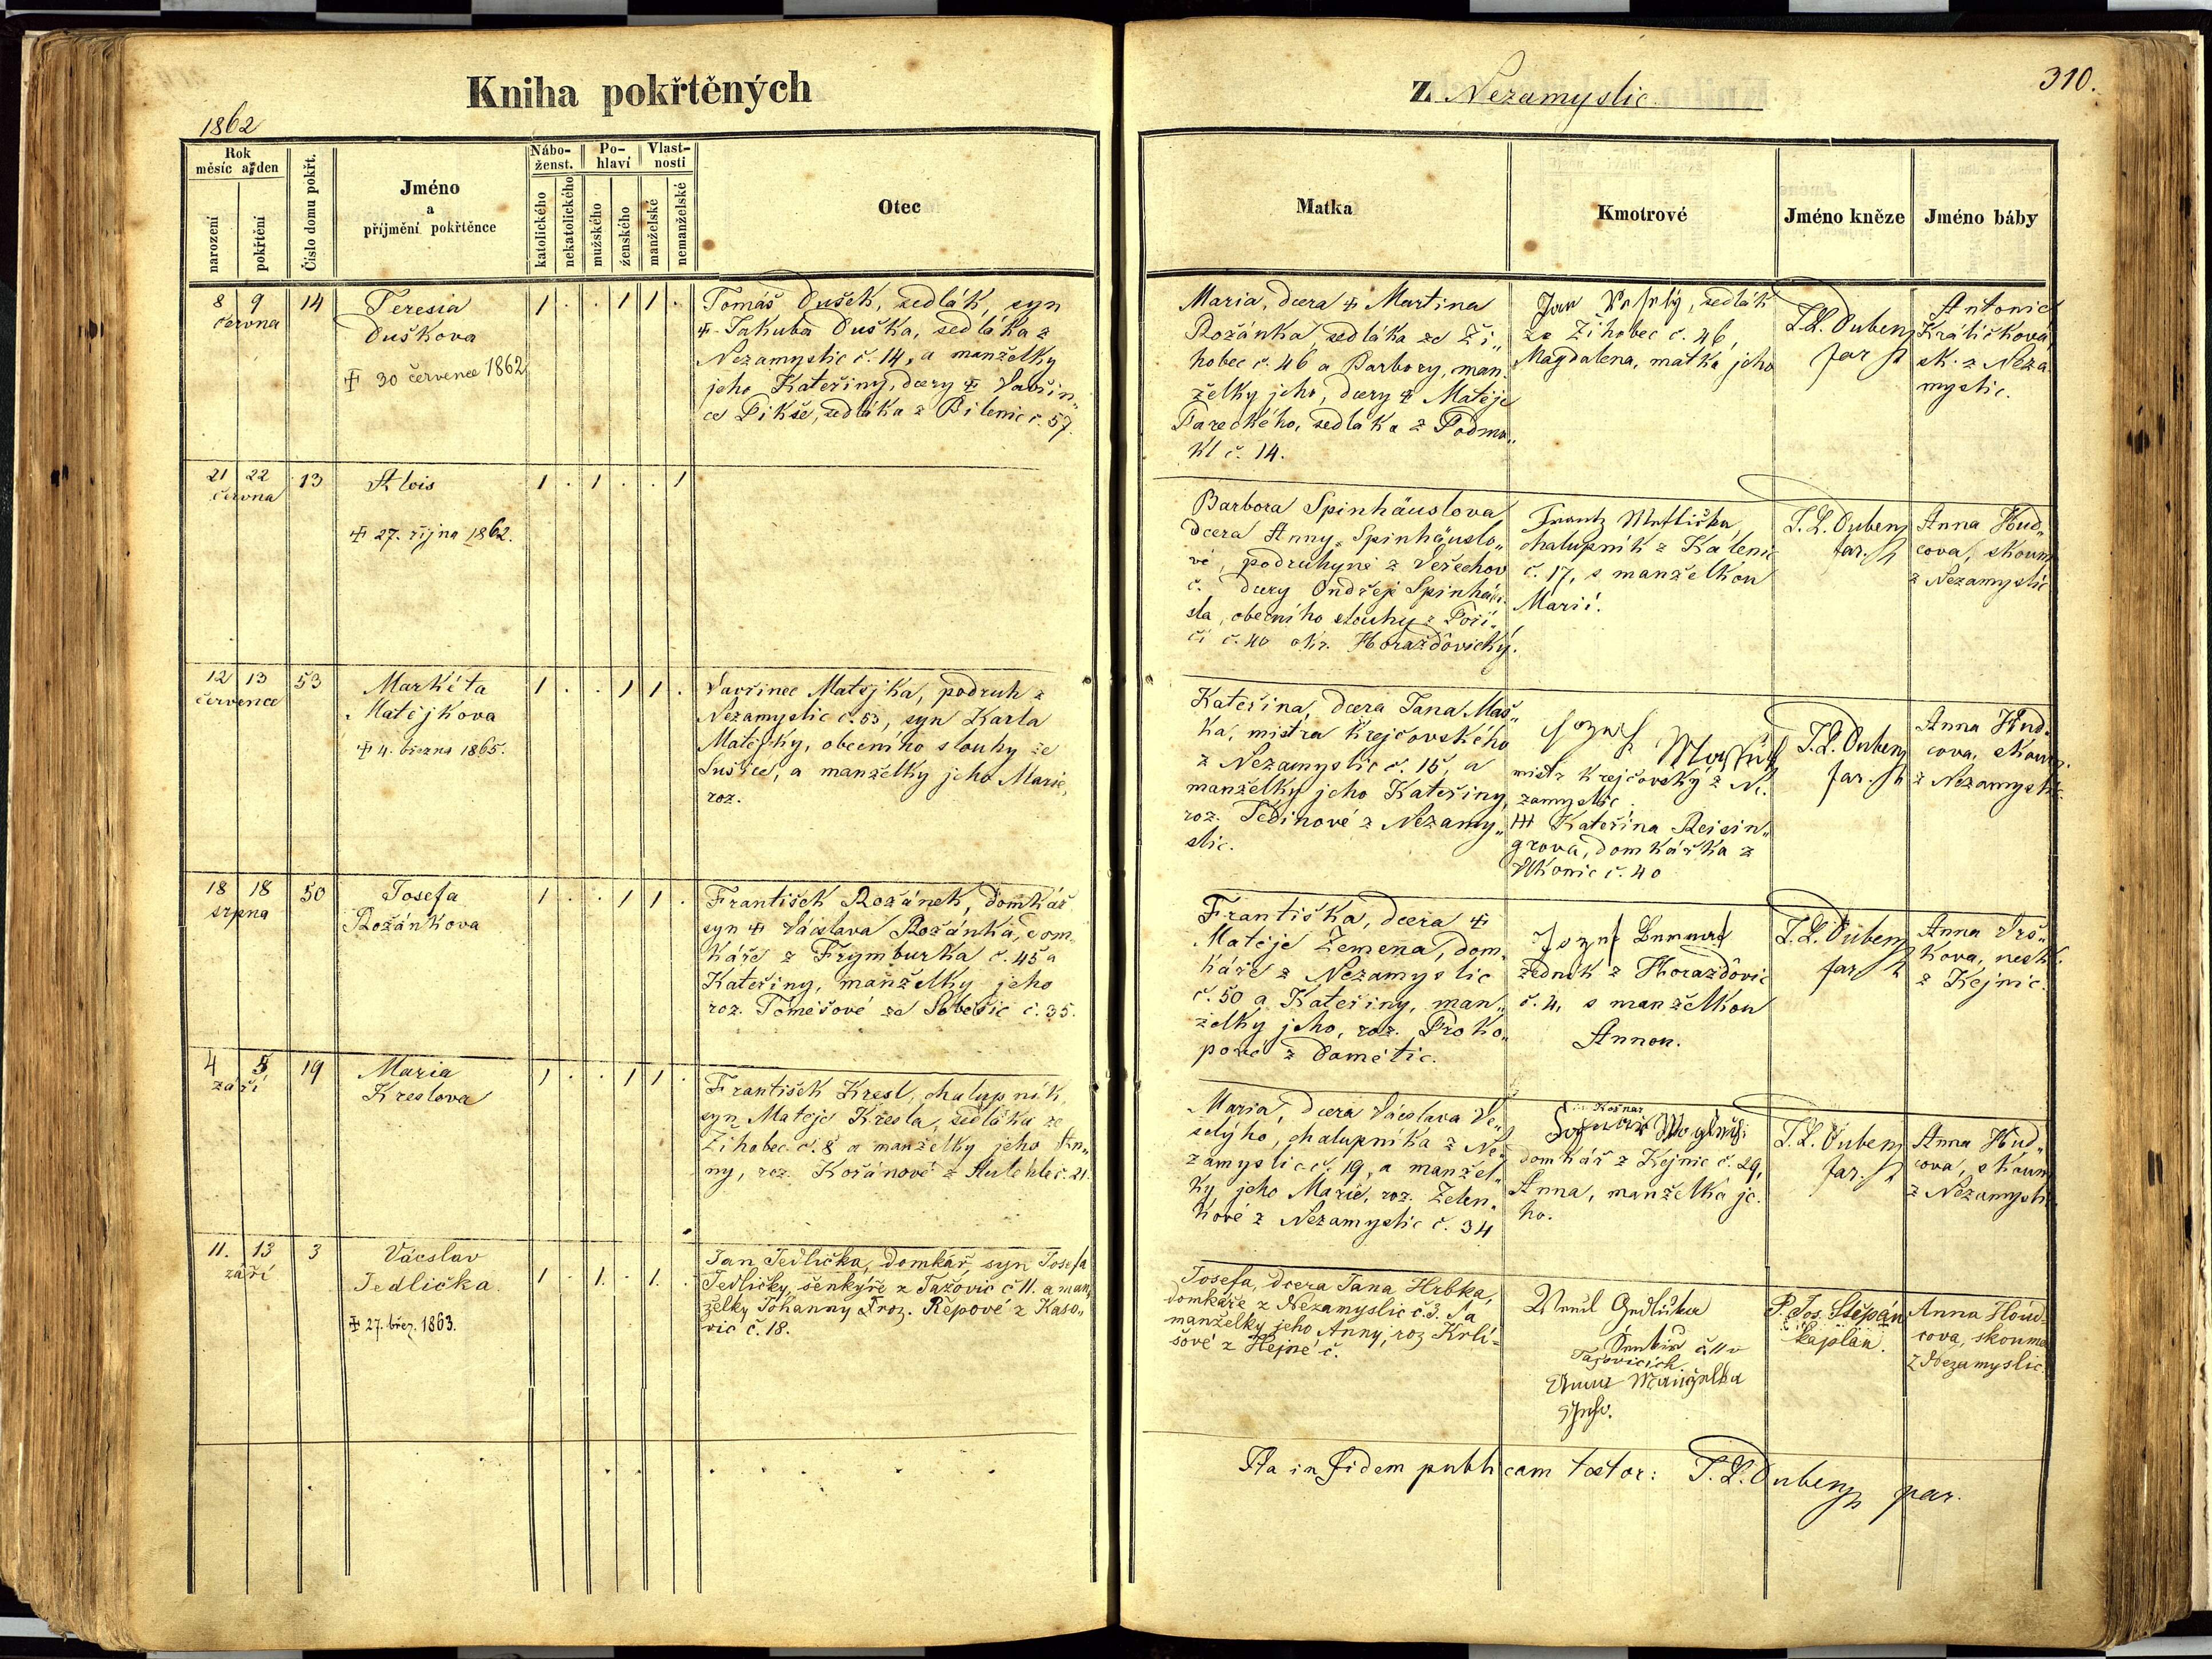 Kniha pokřtěných
z Nezamyslic
310.
1862
Rok
měsíc a den
narození
pokřtění
Číslo domu pokřt.
Jméno
a
příjmění pokřtěnce
Nábo-
ženst.
katolického
nekatolického
Po-
hlaví
mužského
ženského
Vlast-
nosti
manželské
nemanželské
Otec
Matka
Kmotrové
Jméno kněze
Jméno báby
8 9 14
června
Teresia
Duškova
30 července 1862
1 . . 1 1 .
Tomáš Dušek, sedlák, syn
Jakuba Duška, sedláka z
Nezamyslic č. 14, a manželky
jeho Kateřiny, dcery Vavřin„
ce Pikše, sedláka z Bilenic č. 57.
Maria, dcera Martina
Rožánka, sedláka ze Ži„
hobec č. 46 a Barbory, man„
želky jeho, dcery Matěje
Pareckého, sedláka z Podmo„
kl č. 14.
Jan Veselý, sedlák
ze Žihobec č. 46,
Magdalena, matka jeho
J. L. Duben
far
Antonie
Králíčková
sk. z Neza
myslic.
21 22 13
června
Alois
27. října 1862.
1 . 1 . . 1
Barbora Spinhäuslova
dcera Anny Spinhäuslo„
vé, podruhyně z Veřechov
č. dcery Ondřeje Spinhäu„
sla, obecního slouhy z Poří„
čí č. 40 okr. Horažďovický.
chalupník z Kalenic
č. 17, s manželkou
Marií.
J. L. Duben
far.
Anna Hud„
cova, skoum
z Nezamyslic
12 13 53
července
Markéta
Matějkova
4. března 1865.
1 . . 1 1 .
Vavřinec Matějka, podruh z
Nezamyslic č. 53, syn Karla
Matějky, obecního slouhy ze
Sušice, a manželky jeho Marie,
roz.
Kateřina, dcera Jana Maš„
ka, mistra krejčovského
z Nezamyslic č. 15, a
manželky jeho Kateřiny,
roz. Jedinové z Nezamy„
slic.
mistr krejčovský z Ne„
zamyslic
Kateřina Reisin„
grova, domkářka z
č. 40
J. L. Duben
far.
Anna Hud„
cova, skoum.
z Nezamyslic
18 18 50
srpna
Josefa
Rožánkova
1 . . 1 1 .
František Rožánek, domkář
syn Václava Rožánka, dom„
káře z Frymburka č. 45 a
Kateřiny, manželky jeho
roz. Tomešové ze Soběšic č. 35.
Františka, dcera
Matěje Zemena, dom„
káře z Nezamyslic
č. 50 a Kateřiny, man„
želky jeho, roz. Proko„
pové z Damětic.
zedník z Horažďovic
č. 4, s manželkou
Annou.
J. L. Duben
far
Anna Vrš„
kova, nesk.
z Kejnic.
4 5 19
září
Maria
Kreslova
1 . . 1 1 .
František Kresl, chalupník,
syn Matěje Kresla, sedláka ze
Žihobec č. 8 a manželky jeho An„
ny, roz. Kořánové z č. 21.
Maria, dcera Václava Ve„
selýho, chalupníka z Ne„
zamyslic č. 19, a manžel„
ky jeho Marie, roz. Zelen„
kové z Nezamyslic č. 34
domkář z Kejnic č. 29,
Anna, manželka je„
ho.
J. L. Duben
far.
Anna Hud„
cova, skoum
z Nezamyslic
11. 13 3
září
Václav
Jedlička.
27. břez. 1863.
1 . 1. . 1. .
Jan Jedlička, domkář, syn Josefa
Jedličky, šenkýře z Tažovic č 11. a man„
želky Johanny roz. Řepové z Kašo„
vic č. 18.
Josefa, dcera Jana Hrbka,
domkáře z Nezamyslic č 3. a
manželky jeho Anny, roz Krli=
šové z Hejné č.
Jedlička
č 11 v
Tažovicích
Anna Manželka
Jeho.
P. Jos. Štěpán
kaplan.
Anna Houd=
cova, skouma
Z Nezamyslic.
Ita in fidem publicam testor: J. L. Duben par.